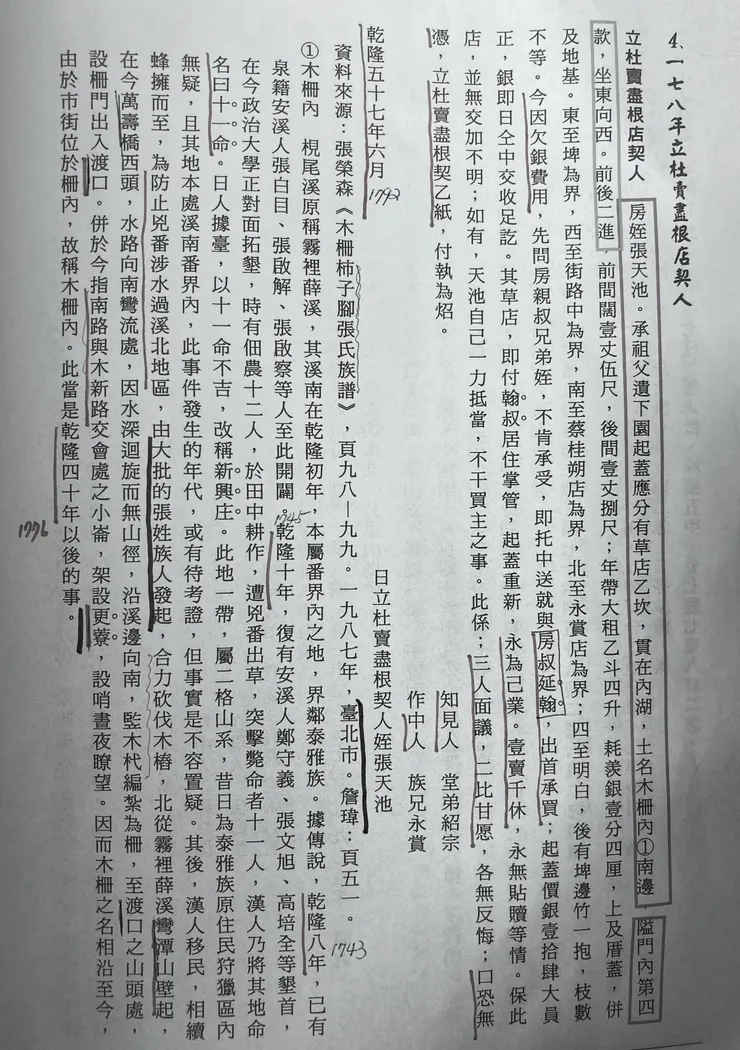 4、一七八年立杜賣盡根店契人
立杜賣盡根店契人　房姪張天池。承祖父遺下園起蓋應分有草店乙坎，貫在內湖，土名木柵內①南邊，隘門內第四
款，坐東向西。前後二進，前間闊壹丈伍尺，後間壹丈捌尺；年帶大租乙斗四升，耗羨銀壹分四厘，上及厝蓋，併
及地基。東至埤為界，西至街路中為界，南至蔡桂朔店為界，北至永賞店為界；四至明白，後有埤邊竹一抱，枝數
不等。今因欠銀費用，先問房親叔兄弟姪，不肯承受，即托中送就與房叔延翰，出首承買；起蓋價銀壹拾肆大員
正，銀即日仝中交收足訖。其草店，即付翰叔居住掌管，起蓋重新，永為己業。壹賣千休，永無貼贖等情。保此
店，並無交加不明；如有，天池自己一力抵當，不干買主之事。此係；三人面議，二比甘愿，各無反悔；口恐無
憑，立杜賣盡根契乙紙，付執為炤。
知見人　堂弟紹宗
作中人　族兄永賞
日立杜賣盡根契人姪張天池
乾隆五十七年六月
1792
資料來源：張榮森《木柵柿子腳張氏族譜》，頁九八－九九。一九八七年，臺北市。詹瑋：頁五一。
1743
①木柵內　梘尾溪原稱霧裡薛溪，其溪南在乾隆初年，本屬番界內之地，界鄰泰雅族。據傳說，乾隆八年，已有
泉籍安溪人張白目、張啟解、張啟察等人至此開闢。乾隆十年，復有安溪人鄭守義、張文旭、高培全等墾首，
1745
在今政治大學正對面拓墾，時有佃農十二人，於田中耕作，遭兇番出草，突擊斃命者十一人，漢人乃將其地命
名曰十一命。日人據臺，以十一命不吉，改稱新興庄。此地一帶，屬二格山系，昔日為泰雅族原住民狩獵區內
無疑，且其地本處溪南番界內，此事件發生的年代，或有待考證，但事實是不容置疑。其後，漢人移民，相續
蜂擁而至，為防止兇番涉水過溪北地區，由大批的張姓族人發起，合力砍伐木樁，北從霧裡薛溪彎潭山壁起，
在今萬壽橋西頭，水路向南彎流處，因水深迴旋而無山徑，沿溪邊向南，監木杙編紮為柵，至渡口之山頭處，
設柵門出入渡口。併於今指南路與木新路交會處之小崙，架設更藔，設哨晝夜瞭望。因而木柵之名相沿至今，
由於市街位於柵內，故稱木柵內。此當是乾隆四十年以後的事。
1776